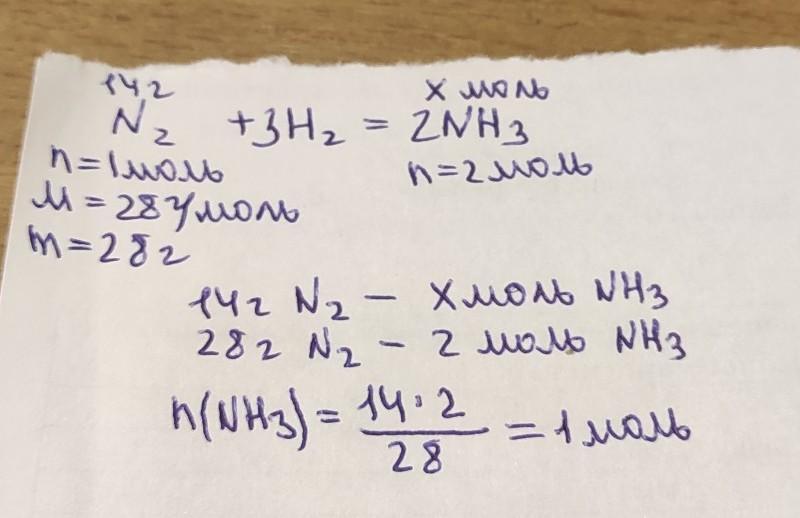 14г x моль
N₂ +3H₂ = 2NH₃
n=1моль n=2моль
M=28г/моль
m=28г
14г N₂ – x моль NH₃
28г N₂ – 2 моль NH₃
n(NH₃) = 14·2/28 = 1моль